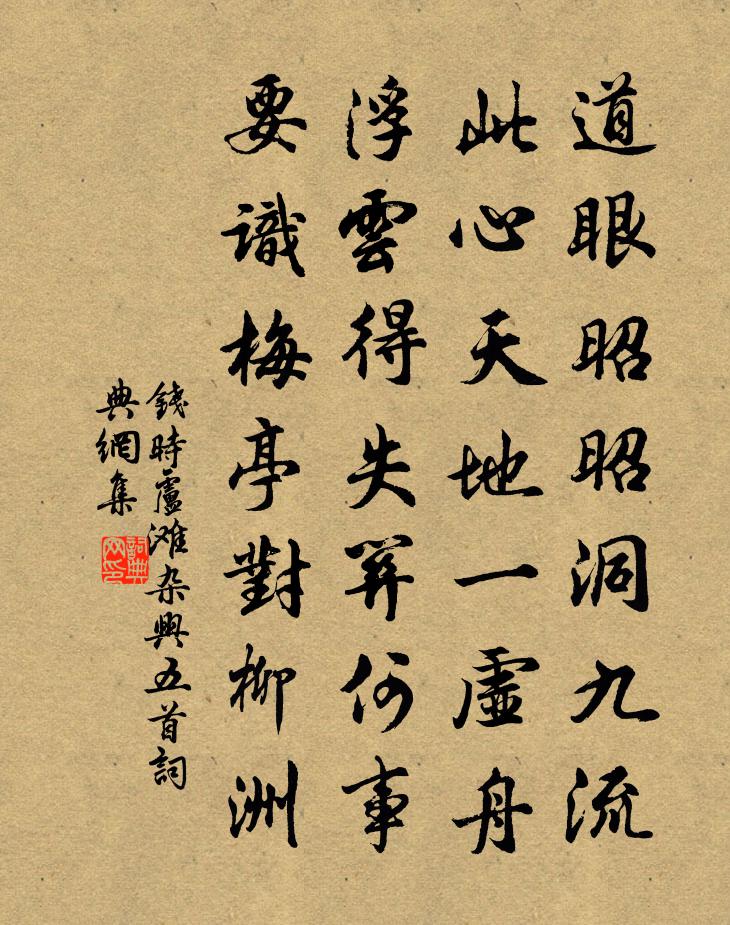 道眼昭昭洞九流
此心天地一虚舟
浮雲得失關何事
要識梅亭對柳洲
錢時盧滩杂興五首詞
典網集
詞典
网印